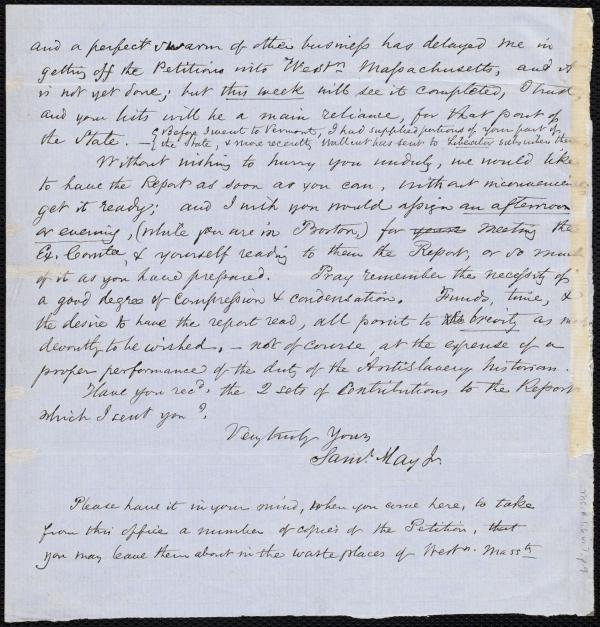 and a perfect swarm of other business has delayed me in
getting off the Petitions into Westn Massachusetts, and it
is not yet done; but this week will see it completed, I trust,
and your lists will be a main reliance, for that part of
the State. — {Before I went to Vermont, I had supplied portions of your part of
{the State, & more recently Wallcut has sent to Liberator subscribers there
Without wishing to hurry you unduly, we would like
to have the Report as soon as you can, without inconvenience
get it ready; and I wish you would assign an afternoon
or evening, (while you are in Boston,) for yours meeting the
Ex. Comtee, & yourself reading to them the Report, or so much
of it as you have prepared. Pray remember the necessity of
a good degree of Compression & condensation. Funds, time, &
the desire to have the report read, all point to brevity as most
devoutly to be wished, — not of course, at the expense of a
proper performance of the duty of the Antislavery historian.
Have you recd. the 2 sets of Contributions to the Report
which I sent you?
Very truly Yours
Saml. May Jr.
Please have it in your mind, when you come here, to take
from this office a number of copies of the Petition, that
you may leave them about in the waste places of Westn. Massts